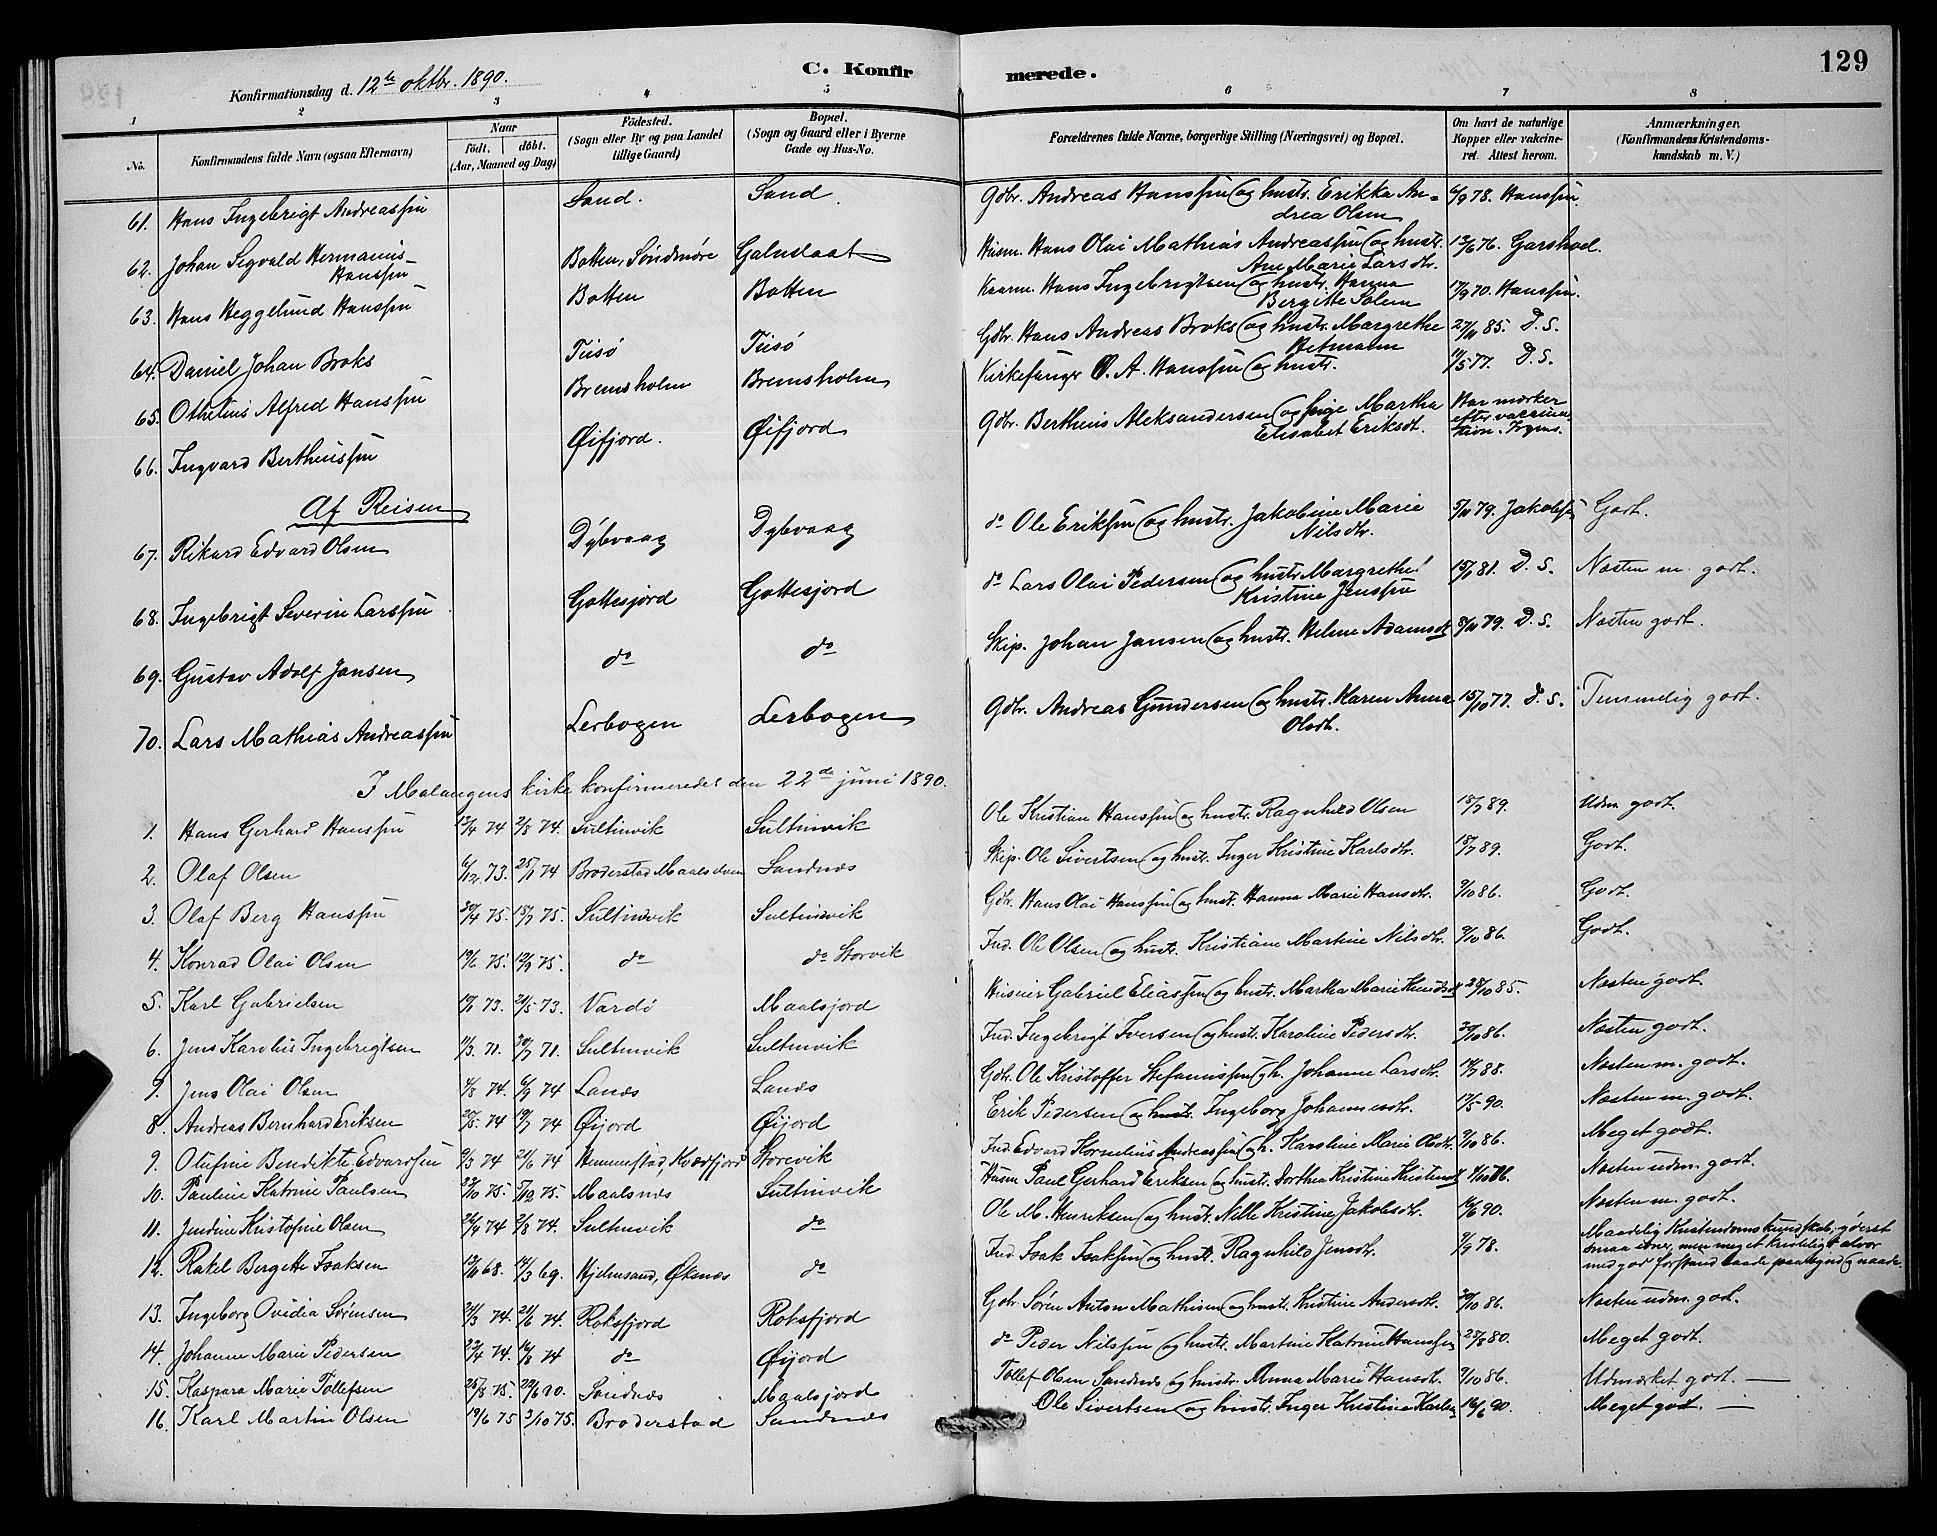 129
C. Konfirmerede.
Konfirmationsdag d. 12te oktbr. 1890.
1 2 3 4 5 6 7 8
No. Konfirmandens fulde Navn (ogsaa Efternavn) Naar Födt. döbt. (Aar, Maaned og Dag) Födested. (Sogn eller By og paa Landet tillige Gaard) Bopæl. (Sogn og Gaard eller i Byerne Gade og Hus-No. Forældrenes fulde Navne, borgerlige Stilling (Næringsvei) og Bopæl. Om havt de naturlige Kopper eller vakcineret. Attest herom. Anmærkninger. (Konfirmandens Kristendomskundskab m. V.)
61. Hans Ingebrigt Andreassen Sand. Sand. Gdbr. Andreas Hanssen og hustr. Erikka Andrea Olsen 6/9 78. Hanssen.
62. Johan Sigvald Hermanus Hanssen Botten, Söndmöre Galnslaat Husm. Hans Olai Mathias Andreassen og hustr. Ane Marie Larsdtr. 13/6 76. Garshod.
63. Hans Heggelund Hanssen Botten Botten Hans Ingebrigtsen og hustr. Hanna Bergitte Solem 17/9 70. Hanssen.
64. Daniel Johan Broks Tisö Tisö Gdbr. Hans Andreas Broks og hustr. Margrethe Hetmann 27/11 85. D. S.
65. Othelius Alfred Hanssen Bremsholm Bremsholm Kirkesanger O. A. Hanssen og hustr. 11/5 77. D. S.
66. Ingvard Bertheussen Øifjord. Øifjord Gdbr. Bertheus Aleksandersen og pige Martha Elisabet Eriksdt. Har mærker efter vaccination.
Af Reisen
67. Rikard Edvard Olsen Dybvaag Dybvaag do Ole Eriksen og hustr. Jakobine Marie Nilsdtr. 5/11 79. Jakobsen Godt.
68. Ingebrigt Severin Larssen Gottesjord Gottesjord do Lars Olai Pedersen og hustr. Margrethe Kristine Jenssen 15/7 81. D. S. Næsten m. godt.
69. Gustav Adolf Jansen do do Skip. Johan Jansen og hustr. Helene Adamsdt 8/11 79. D. S. Næsten godt.
70. Lars Mathias Andreassen Lerbogen Lerbogen Gdbr. Andreas Gundersen og hustr. Karen Anna Olsdt. 15/10 77. D. S. Temmelig godt.
I Malangens kirke konfirmeredes den 22de juni 1890.
1. Hans Gerhard Hanssen 12/4 74 2/8 74. Sultinvik Sultinvik Ole Kristian Hanssen og hustr. Ragnhild Olsen 18/7 89. Udm. godt.
2. Olaf Olsen 6/12 73. 25/1 74 Broderstad Maalselven Sandnes Skip. Ole Sivertsen og hustr. Inger Kristine Karlsdtr. 18/7 89. Godt.
3. Olaf Berg Hanssen 30/4 75. 18/7 75. Sultinvik Sultinvik Gdr. Hans Olai Hanssen og hustr. Hanna Marie Hansdtr. 9/10 86. Godt.
4. Konrad Olai Olsen 19/6 75. 12/9 75. do do Storvik Ind. Ole Olsen og hustr. Kristiane Martine Nilsdtr. 9/10 86. Godt.
5. Karl Gabrielsen 19/1 73. 21/5 73. Vardö Maalsjord Huseier Gabriel Eliassen og hustr. Martha Marie Knudsdt 28/10 85. Næsten godt.
6. Jens Karolius Ingebrigtsen 11/3 71. 30/7 71. Sultinvik Sultinvik Ind. Ingebrigt Iversen og hustr. Karoline Pedersdtr. 30/10 86. Næsten godt.
9. Jens Olai Olsen 4/8 74. 6/9 74 Lanes Lanes Gdr. Ole Kristoffer Stefanussen og h. Johanne Larsdtr. 14/7 88. Næsten m. godt.
8. Andreas Bernhard Eriksen 20/5 74 19/7 74 Øijord Øijord Erik Pedersen og hustr. Ingeborg Johannesdtr. 17/5 90. Næsten m. godt.
9. Olufine Bendikte Edvardsen 9/3 74 21/6 74 Hemmestad, Kvædfjord Storevik Ind. Edvard Kornelius Andreassen og h. Karoline Marie Olsdtr. 9/10 86. Meget godt.
10. Pauline Katrine Paulsen 23/10 75. 5/12 75. Maalsnes Sultinvik Husm. Paul Gerhard Eriksen og hustr. Dorthea Kristine Kristensdt 9/10 86. Næsten udm. godt.
11. Jendine Kristofine Olsen 26/4 74 2/8 74. Sultinvik do Ole M. Henriksen og hustr. Nelle Kristine Jakobsdtr. 16/6 90. Næsten m. godt.
12. Rakel Bergette Isaksen 13/11 68. 14/3 69. Hjelmsand, Øksnes do Ind. Isak Isaksen og hustr. Ragnhild Jensdtr. 9/9 78. Maadelig Kristendomskundskab, yderst smaa evner, men meget kristeligt alvor med god forstand baade paa synd og naade.
13. Ingeborg Ovidia Sörensen 21/3 74. 21/6 74. Roksfjord Roksfjord Gdr. Sören Anton Mathisen og hustr. Kristine Andersdtr. 30/10 86. Næsten udm. godt.
14. Johanne Marie Pedersen 23/4 74. 16/8 74 do Øijord do Peder Nilssen og hustr. Martine Katrine Hanssen 27/8 80. Meget godt.
15. Kaspara Marie Tollefsen 25/8 75. 22/6 90. Sandnes Maalsjord Tollef Olsen Sandnes og hustr. Anna Marie Hansdtr. 9/10 86. Udmærket godt. —
16. Karl Martin Olsen 19/6 75 3/10 75. Broderstad Sandnes Ole Sivertsen og hustr. Inger Kristine Karlsen 16/6 90. Meget godt. —